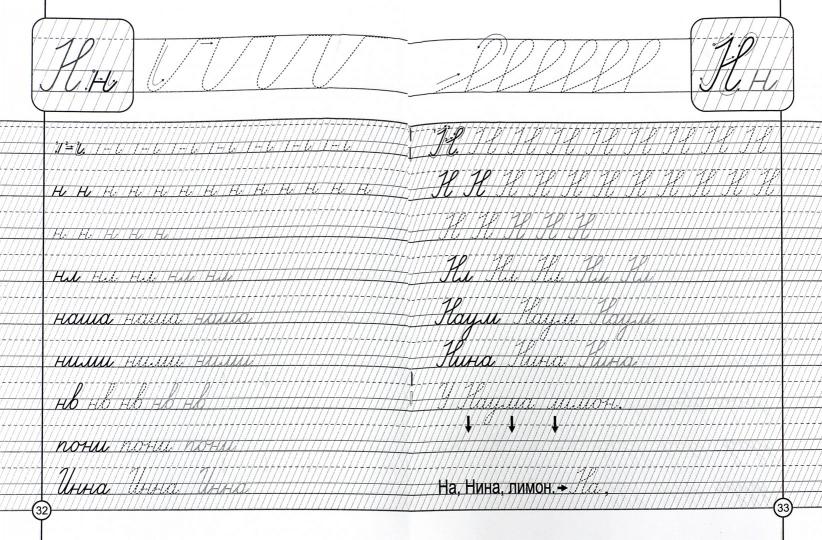 Н н
н н н н н н н н н н н н н
н н н н н
нл нл нл нл нл
наша наша наша
ними ними ними
нв нв нв нв нв
пони пони пони
Инна Инна Инна
32
Н н
Н Н Н Н Н Н Н Н Н Н
Н Н Н Н Н Н Н Н Н Н Н
Н Н Н Н Н
Нл Нл Нл Нл Нл
Наум Наум Наум
Нина Нина Нина
У Наума лимон.
На, Нина, лимон. → На,
33